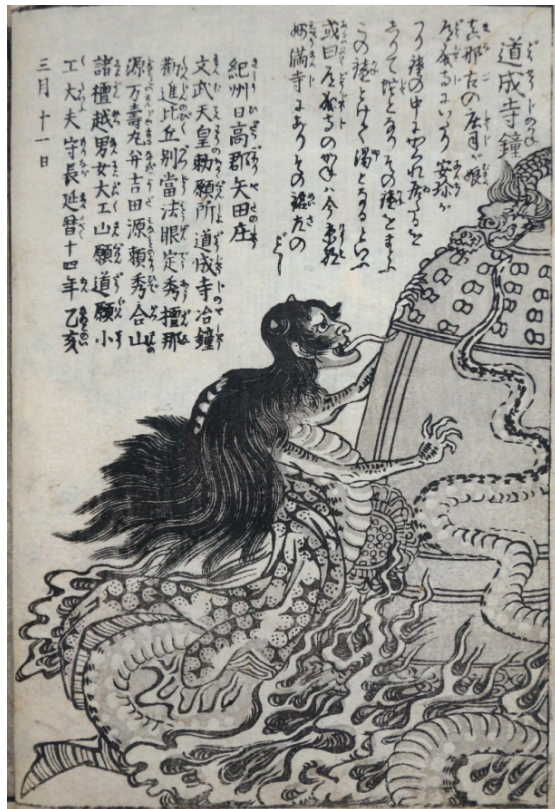 道成寺鐘
真那古の庄司が娘
道成寺にいたり安珍が
つり鐘の中にかくれ居たるを
しりて蛇となりその鐘をまとふ
この鐘とけて湯となるといふ
或曰道成寺のかねハ今京都
妙満寺にありその銘左の
ごとし
紀州日高郡矢田庄
文武天皇勅願所道成寺冶鐘
勧進比丘別當法眼定秀檀那
源万壽丸并吉田源頼秀合山
諸檀越男女大工山願道願小
工大夫守長延暦十四年乙亥
三月十一日